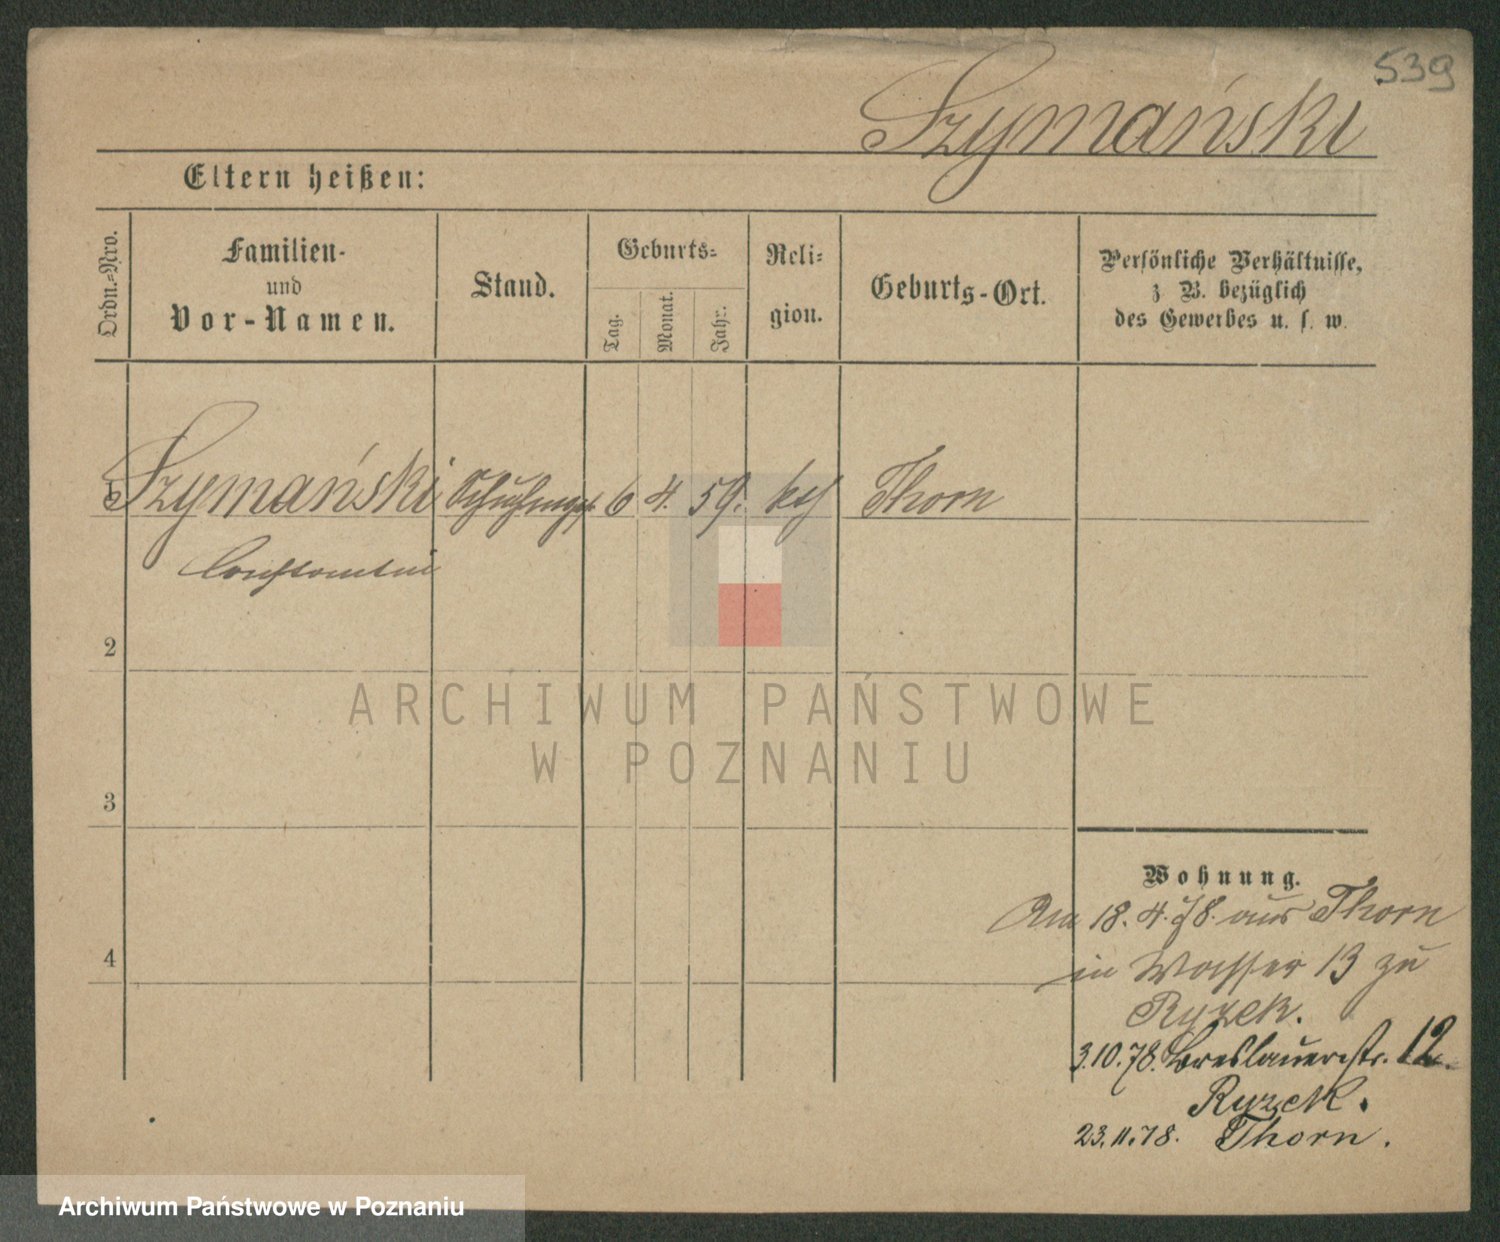 539
Szymański
Eltern heißen:
Ordn.-Nro.
Familien-
und
Vor-Namen.
Stand.
Geburts-
Tag.
Monat.
Jahr.
Reli-
gion.
Geburts-Ort.
Persönliche Verhältnisse,
z. B. bezüglich
des Gewerbes u. s. w.
1 Szymański 6 4. 59. kth Thorn
Constantin
2
3
4
Wohnung.
Am 18.4.78. aus Thorn
in Wasser 13 zu
Ryzek.
3.10.78. Breslauerstr. 12.
Ryzek.
23.11.78. Thorn.
ARCHIWUM PAŃSTWOWE
W POZNANIU
Archiwum Państwowe w Poznaniu